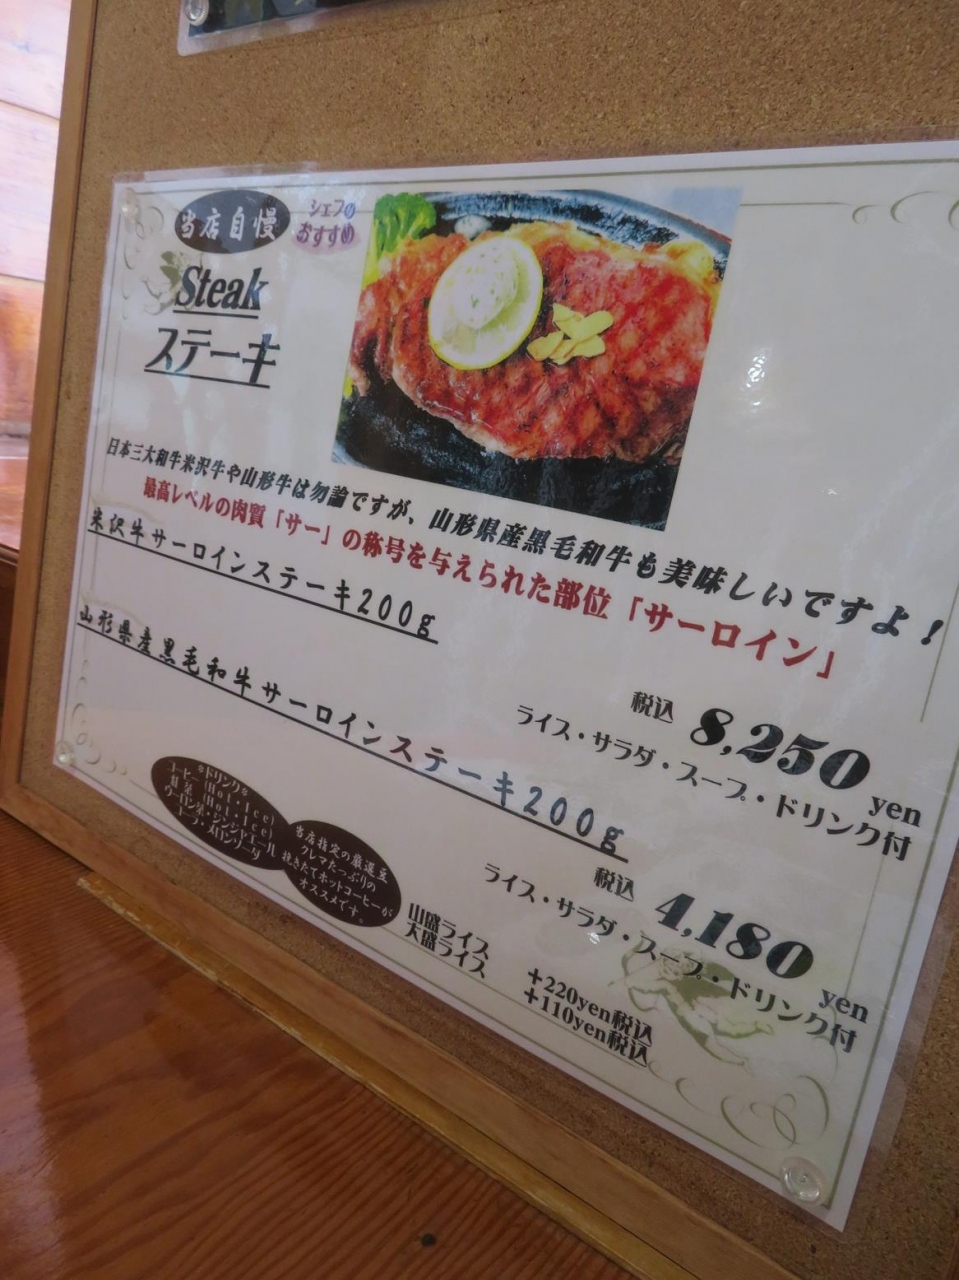 当店自慢
シェフの
おすすめ
Steak
ステーキ
日本三大和牛米沢牛や山形牛は勿論ですが、山形県産黒毛和牛も美味しいですよ!
最高レベルの肉質「サー」の称号を与えられた部位「サーロイン」
米沢牛サーロインステーキ200g
税込 8,250 yen
ライス・サラダ・スープ・ドリンク付
山形県産黒毛和牛サーロインステーキ200g
税込 4,180 yen
ライス・サラダ・スープ・ドリンク付
*ドリンク*
コーヒー(Hot・Ice)
紅茶(Hot・Ice)
ウーロン茶・ジンジャエール
コーラ・メロンソーダ
当店指定の厳選豆
クレマたっぷりの
挽きたてホットコーヒーが
オススメです。
山盛ライス +220yen税込
大盛ライス +110yen税込